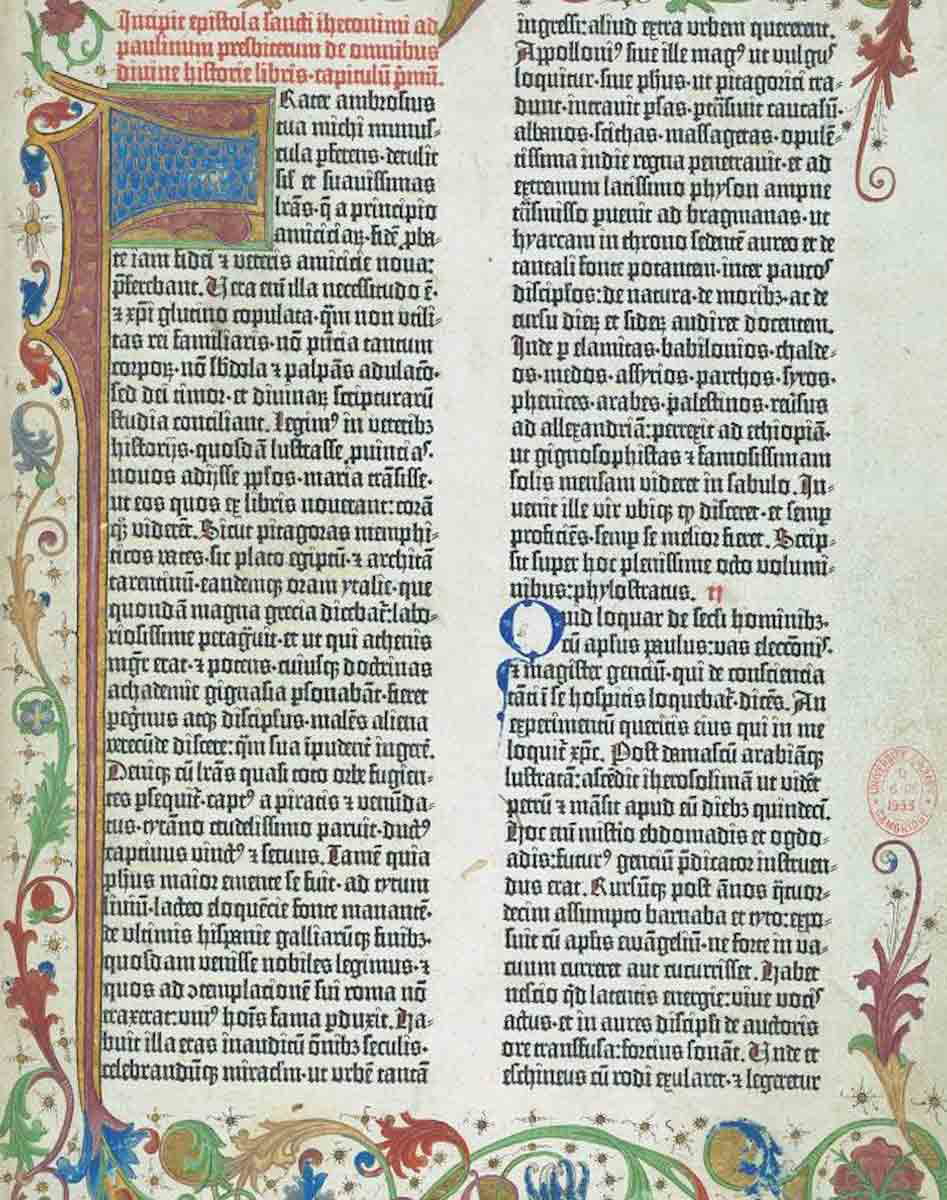 Incipit epistola sancti iheronimi ad
paulinum presbiterum de omnibus
divine historie libris·capitulū pᵐmū.
Frater ambrosius
tua michi munus-
cula pferens·detulit
sił et suavissimas
lrās·q̄ a principio
amiciciaꝝ·fidē ꝓba-
te iam fidei ⁊ veteris amicicie nova:
p̄ferebant. Vera em̄ illa necessitudo ē·
⁊ xp̄i glutino copulata·q̄m non utili-
tas rei familiaris·nō pn̄cia tantum
corpoꝝ·nō sb̄dola ⁊ palpās adulac̄o·
sed dei timor·et divinaꝝ scripturarū
studia conciliant. Legimꝰ in veteribꝫ
historijs·quosdā lustrasse ꝓuinciaˢ·
novos adijsse pp̄los·maria trāsisse·
ut eos quos ex libris noverant: corā
qꝫ viderēt. Sicut pitagoras memphi-
ticos vates·sic plato egiptū·⁊ architā
tarentinū·eandemqꝫ oram ytalie·que
quondā magna grecia dicebat̄: labo-
riosissime peragᵃvit·et ut qui athenis
mgr̄ erat·⁊ potens·cuiusqꝫ doctrinas
achademie gignasia ꝑsonabāt·fieret
pegᵉnus atqꝫ discipłus·malēs aliena
verecūde discere: q̄m sua īpudent̄ ingerē.
Deniqꝫ cū lrās quasi toto orbe fugien-
tes ꝑsequit̄·captꝰ a piratis ⁊ venūda-
tus·tyrāno crudelissimo paruit·ductꝰ
captivus vinctꝰ ⁊ servus. Tamē quia
ph̄us maior emente se fuit·ad tytum
liviū·lacteo eloquēcie fonte manantē·
de ultimis hispanie galliarūqꝫ finibꝫ·
quosdam venisse nobiles legimus·⁊
quos ad ↄtemplacionē sui roma nō
traxerat: uniꝰ hoīs fama ꝑduxit. Ha-
buit illa etas inauditū oīnibꝫ seculis·
celebrandūqꝫ miraclm̄·ut urbē tantā
ingressi: aliud extra urbem quererent.
Apolloniꝰ sive ille magꝰ ut vulgꝰ
loquitur·sive ph̄us·ut pitagorici tra-
dunt·intravit ꝑsas·ꝑtᵃnsivit caucasū·
albanos·scithas·massagetas·opulē-
tissima indie regna penetravit·et ad
extremum latissimo physon ampne
tᵃnsmisso ꝑvenit ad bragmanas·ut
hyarcam in throno sedentē aureo et de
tantali fonte potantem·inter paucoˢ
discipłos: de natura·de moribꝫ·ac de
cursu dieꝝ et sideꝝ audiret docentem.
Inde ꝑ elamitas·babilonios·chalde-
os·medos·assyrios·parthos·syros·
phenices·arabes·palestinos·revsus
ad allexandriā: perrexit ad ethiopiā·
ut gignosophistas ⁊ famosissimam
solis mensam videret in sabulo. In-
venit ille vir ubiqꝫ qꝫ disceret·et semꝑ
proficiēs·semꝑ se melior fieret. Scrip-
sit super hoc plenissime octo volumi-
nibus: phylostratus. II
Quid loquar de secli hominibꝫ·
cū apłus paulus: vas elecc̄oniˢ·
⁊ magister genciū·qui de consciencia
tāti ī se hospitis loquebat̄·dicēs. An
experimentū queritis eius qui in me
loquit̄ xp̄c. Post damascū arabiāqꝫ
lustratā: ascēdit iherosolimā ut videt̄
petrū ⁊ māsit apud eū diebꝫ quindeci.
Hoc em̄ misterio ebdomadis et ogdo-
adis: futurꝰ genciū p̄dicator instruen-
dus erat. Rursūqꝫ post ānos qᵃtuor-
decim assumpto barnaba et tyto: expo-
suit cū apłis ewāgeliū·ne forte in va-
cuum curreret aut cucurrisset. Habet
nescio qᵈ latentis energie: vive vociˢ
actus·et in aures discipłi de auctoris
ore transfusa: forcius sonāt. Unde et
eschineus cū rodi exularet·⁊ legeretur
UNIVERSITY LIBRARY
1933
CAMBRIDGE